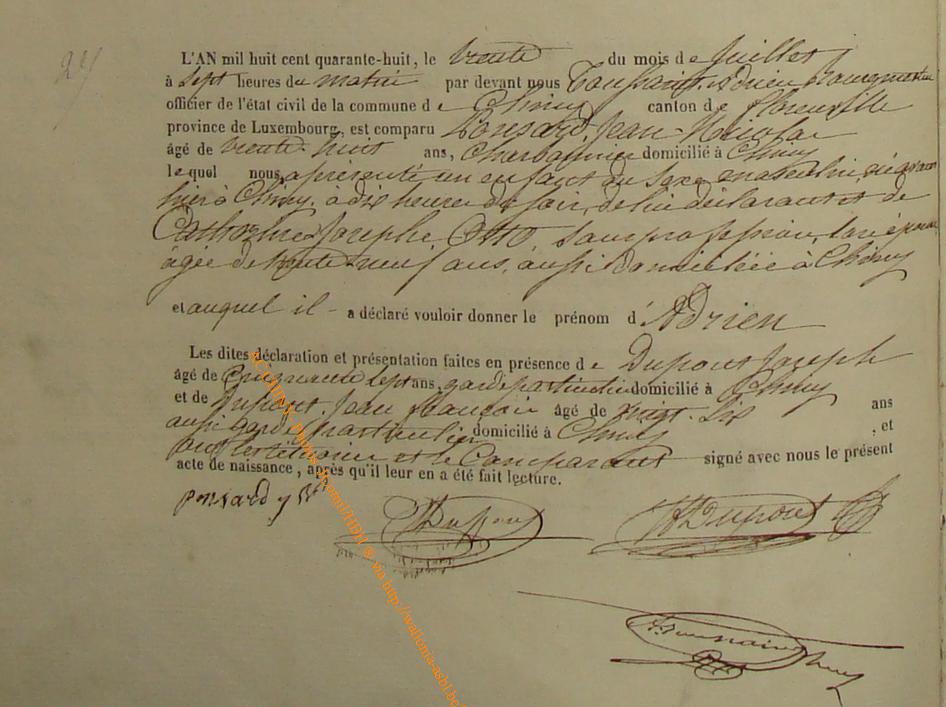 24
L'AN mil huit cent quarante-huit, le trente du mois de Juillet
à sept heures du matin par devant nous Toussaint Adrien Bourgmestre
officier de l'état civil de la commune de Chiny canton de Florenville
province de Luxembourg, est comparu Ponsard, Jean-Nicolas
âgé de trente-huit ans, Charbonnier domicilié à Chiny
lequel nous a présenté un enfant du sexe masculin né avant
hier à Chiny, à dix heures du soir, de lui déclarant et de
Catherine Josephe Otto, sans profession, son épouse,
âgée de trente neuf ans, aussi domiciliée à Chiny
et auquel il - a déclaré vouloir donner le prénom d'Adrien
Les dites déclaration et présentation faites en présence de Dupont Joseph
âgé de Cinquante sept ans, garde particulier domicilié à Chiny
et de Dupont Jean François âgé de vingt-six ans
aussi garde particulier domicilié à Chiny, et
les témoins et le Comparant signé avec nous le présent
acte de naissance, après qu'il leur en a été fait lecture.
ponsard j n
Dupont
Dupont
Toussaint
http://wallonia-asbl.be